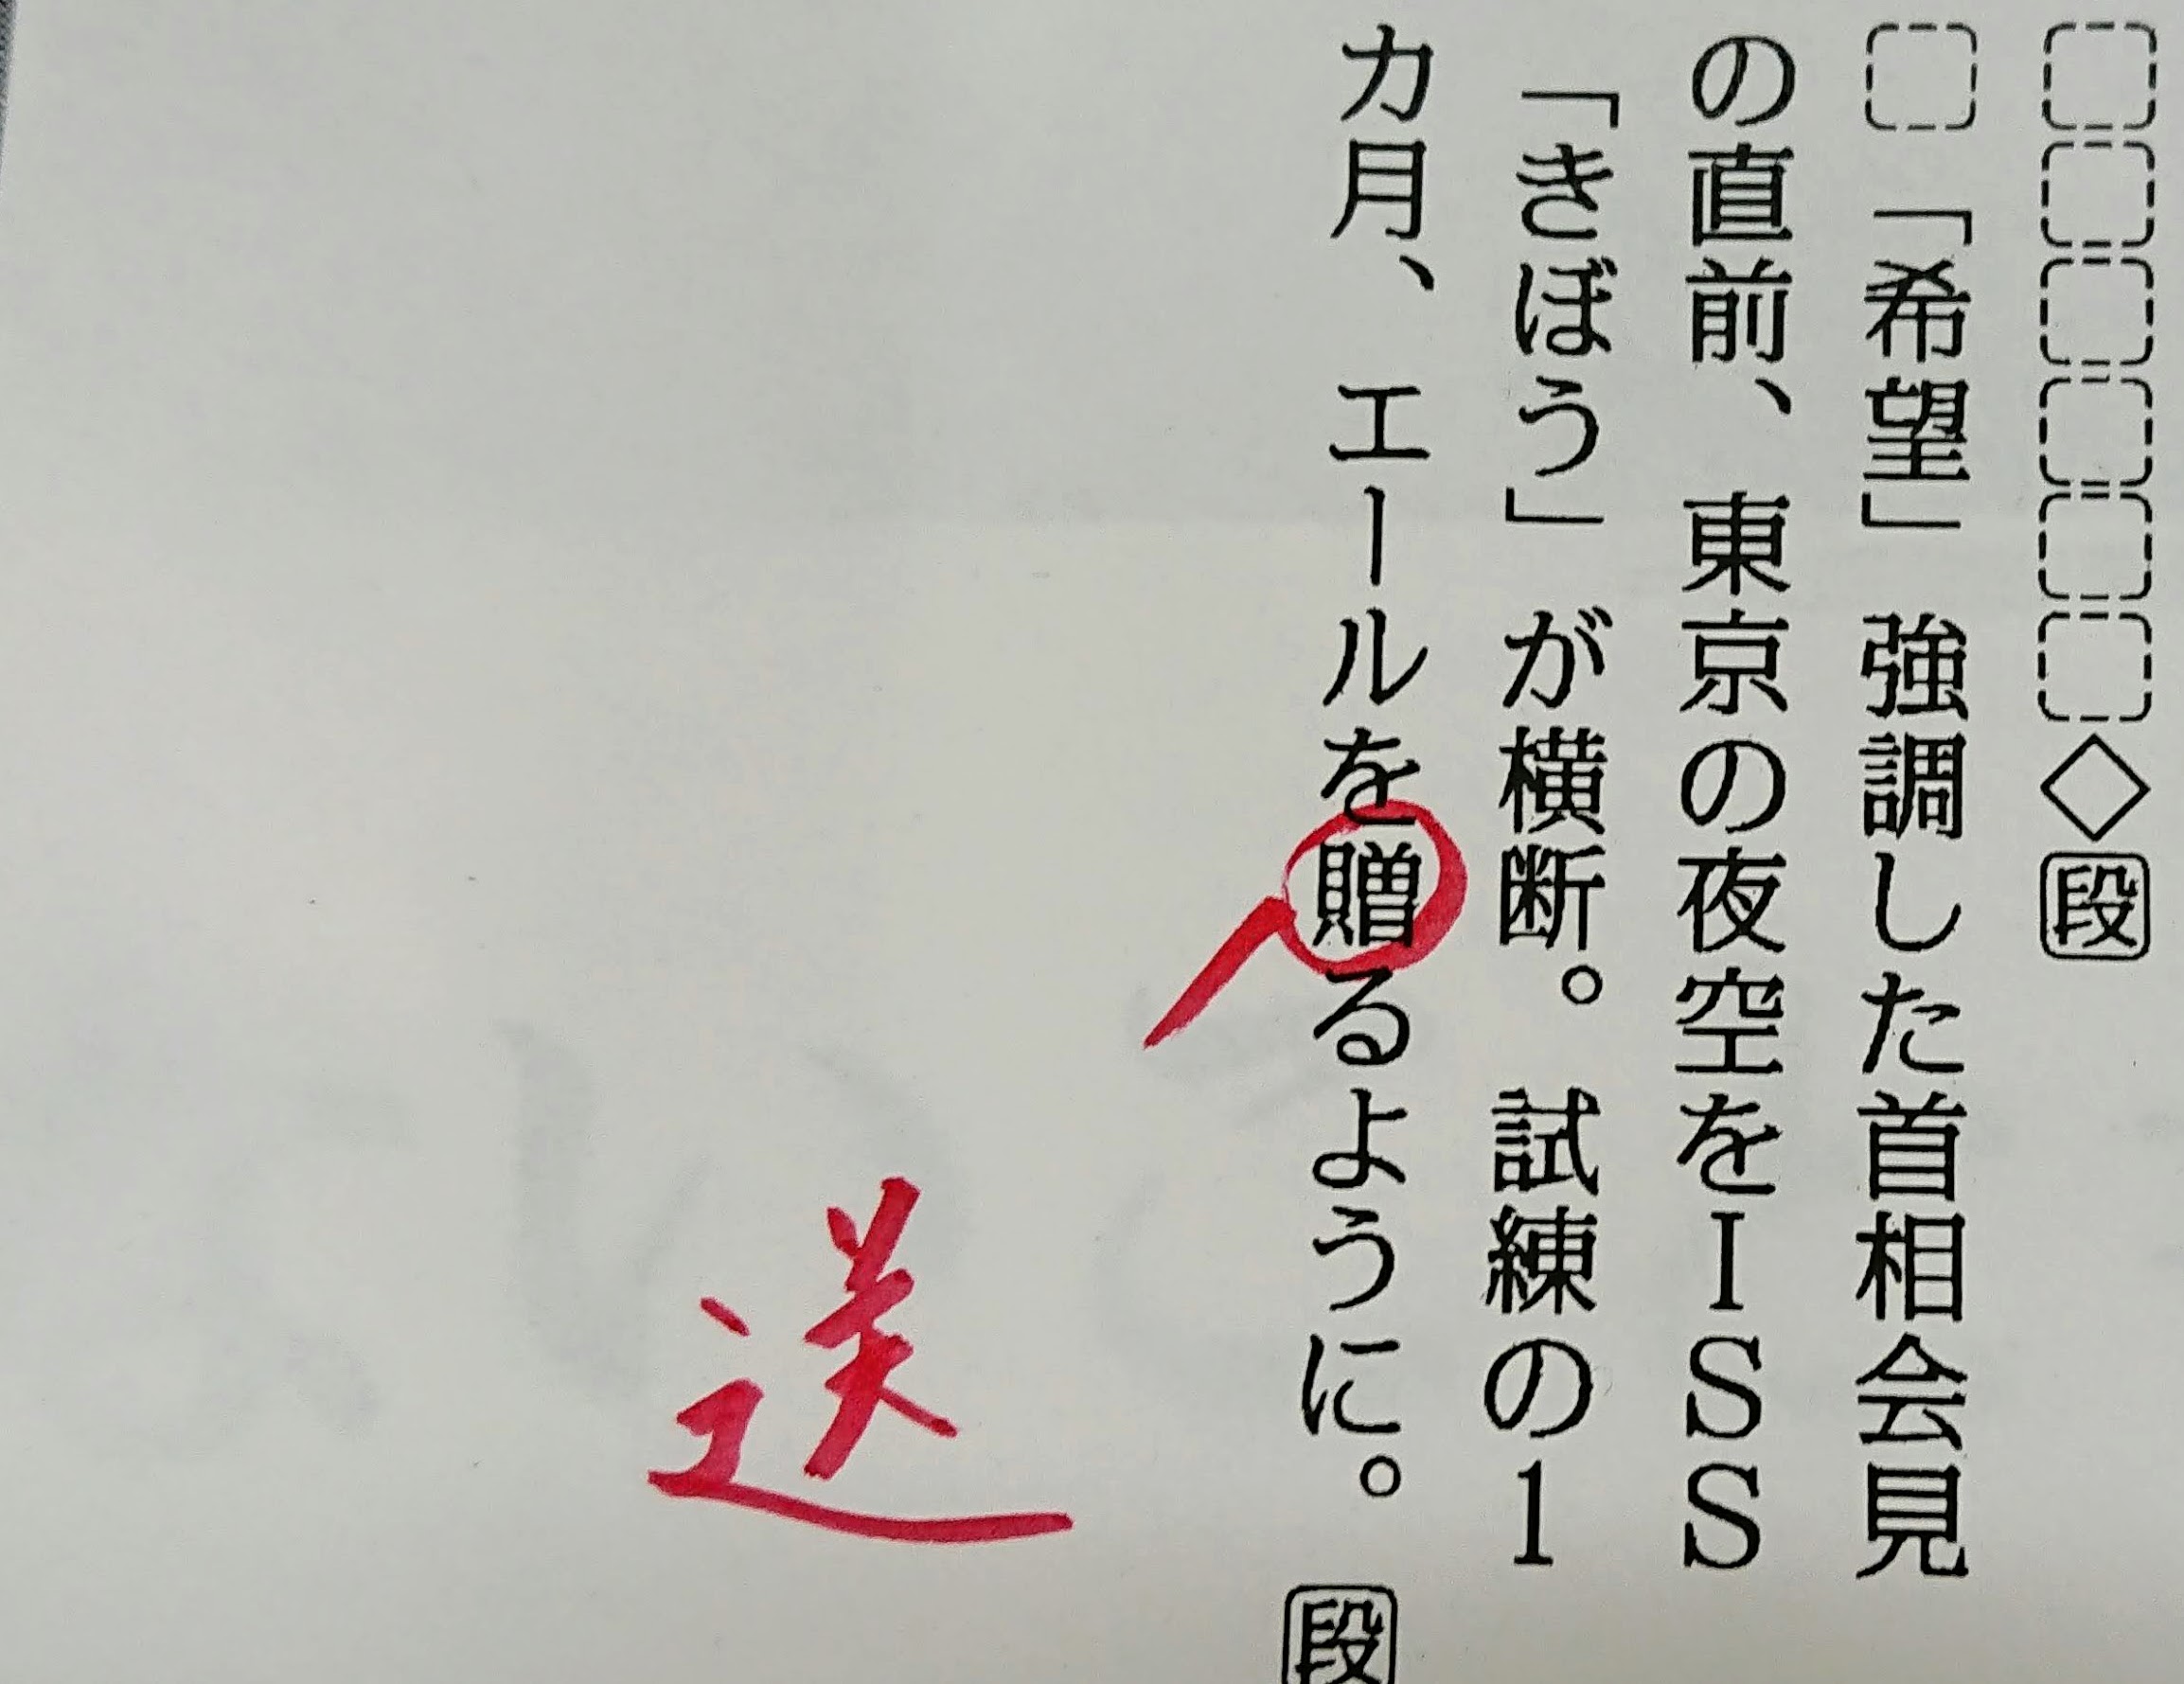 ◇段
「希望」強調した首相会見
の直前、東京の夜空をISS
「きぼう」が横断。試練の1
カ月、エールを贈るように。段
送